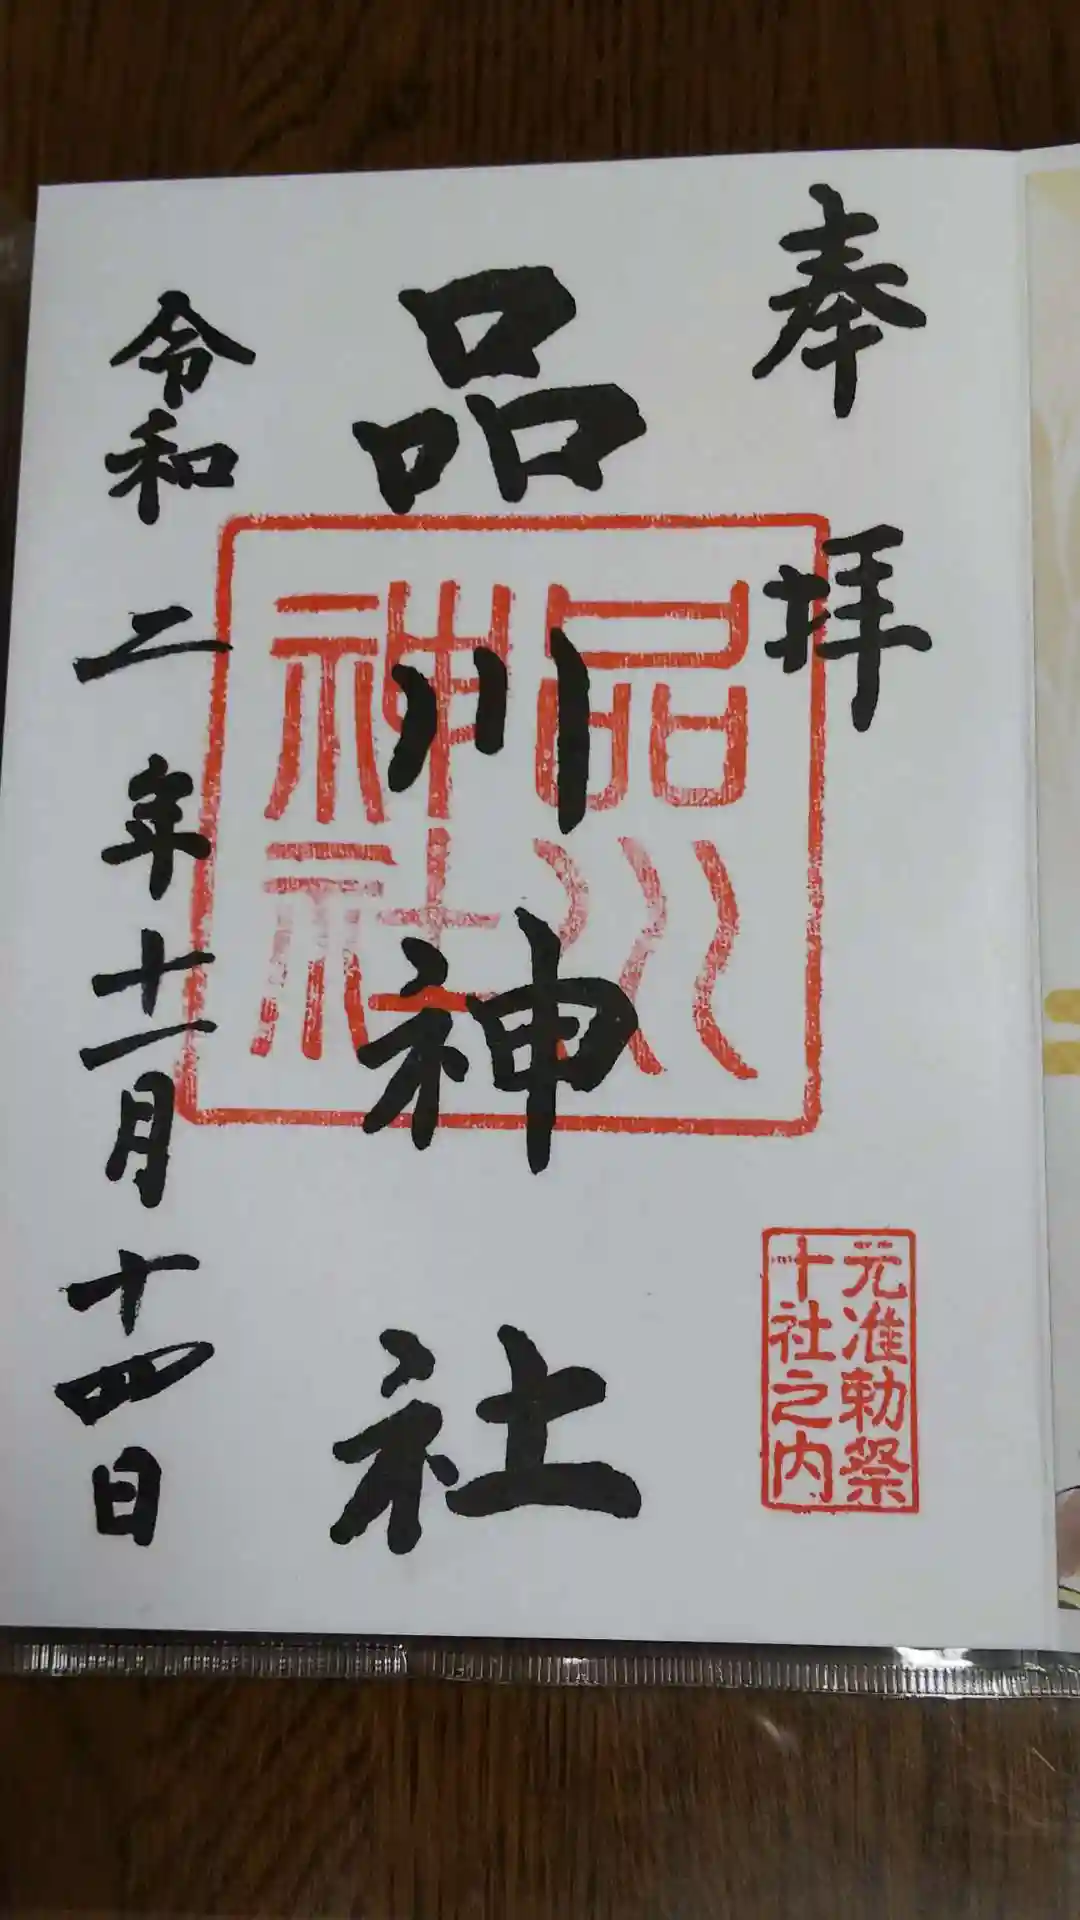 奉拝
元准勅祭
十社之内
品川神社
品川
神社
令和二年十一月十四日